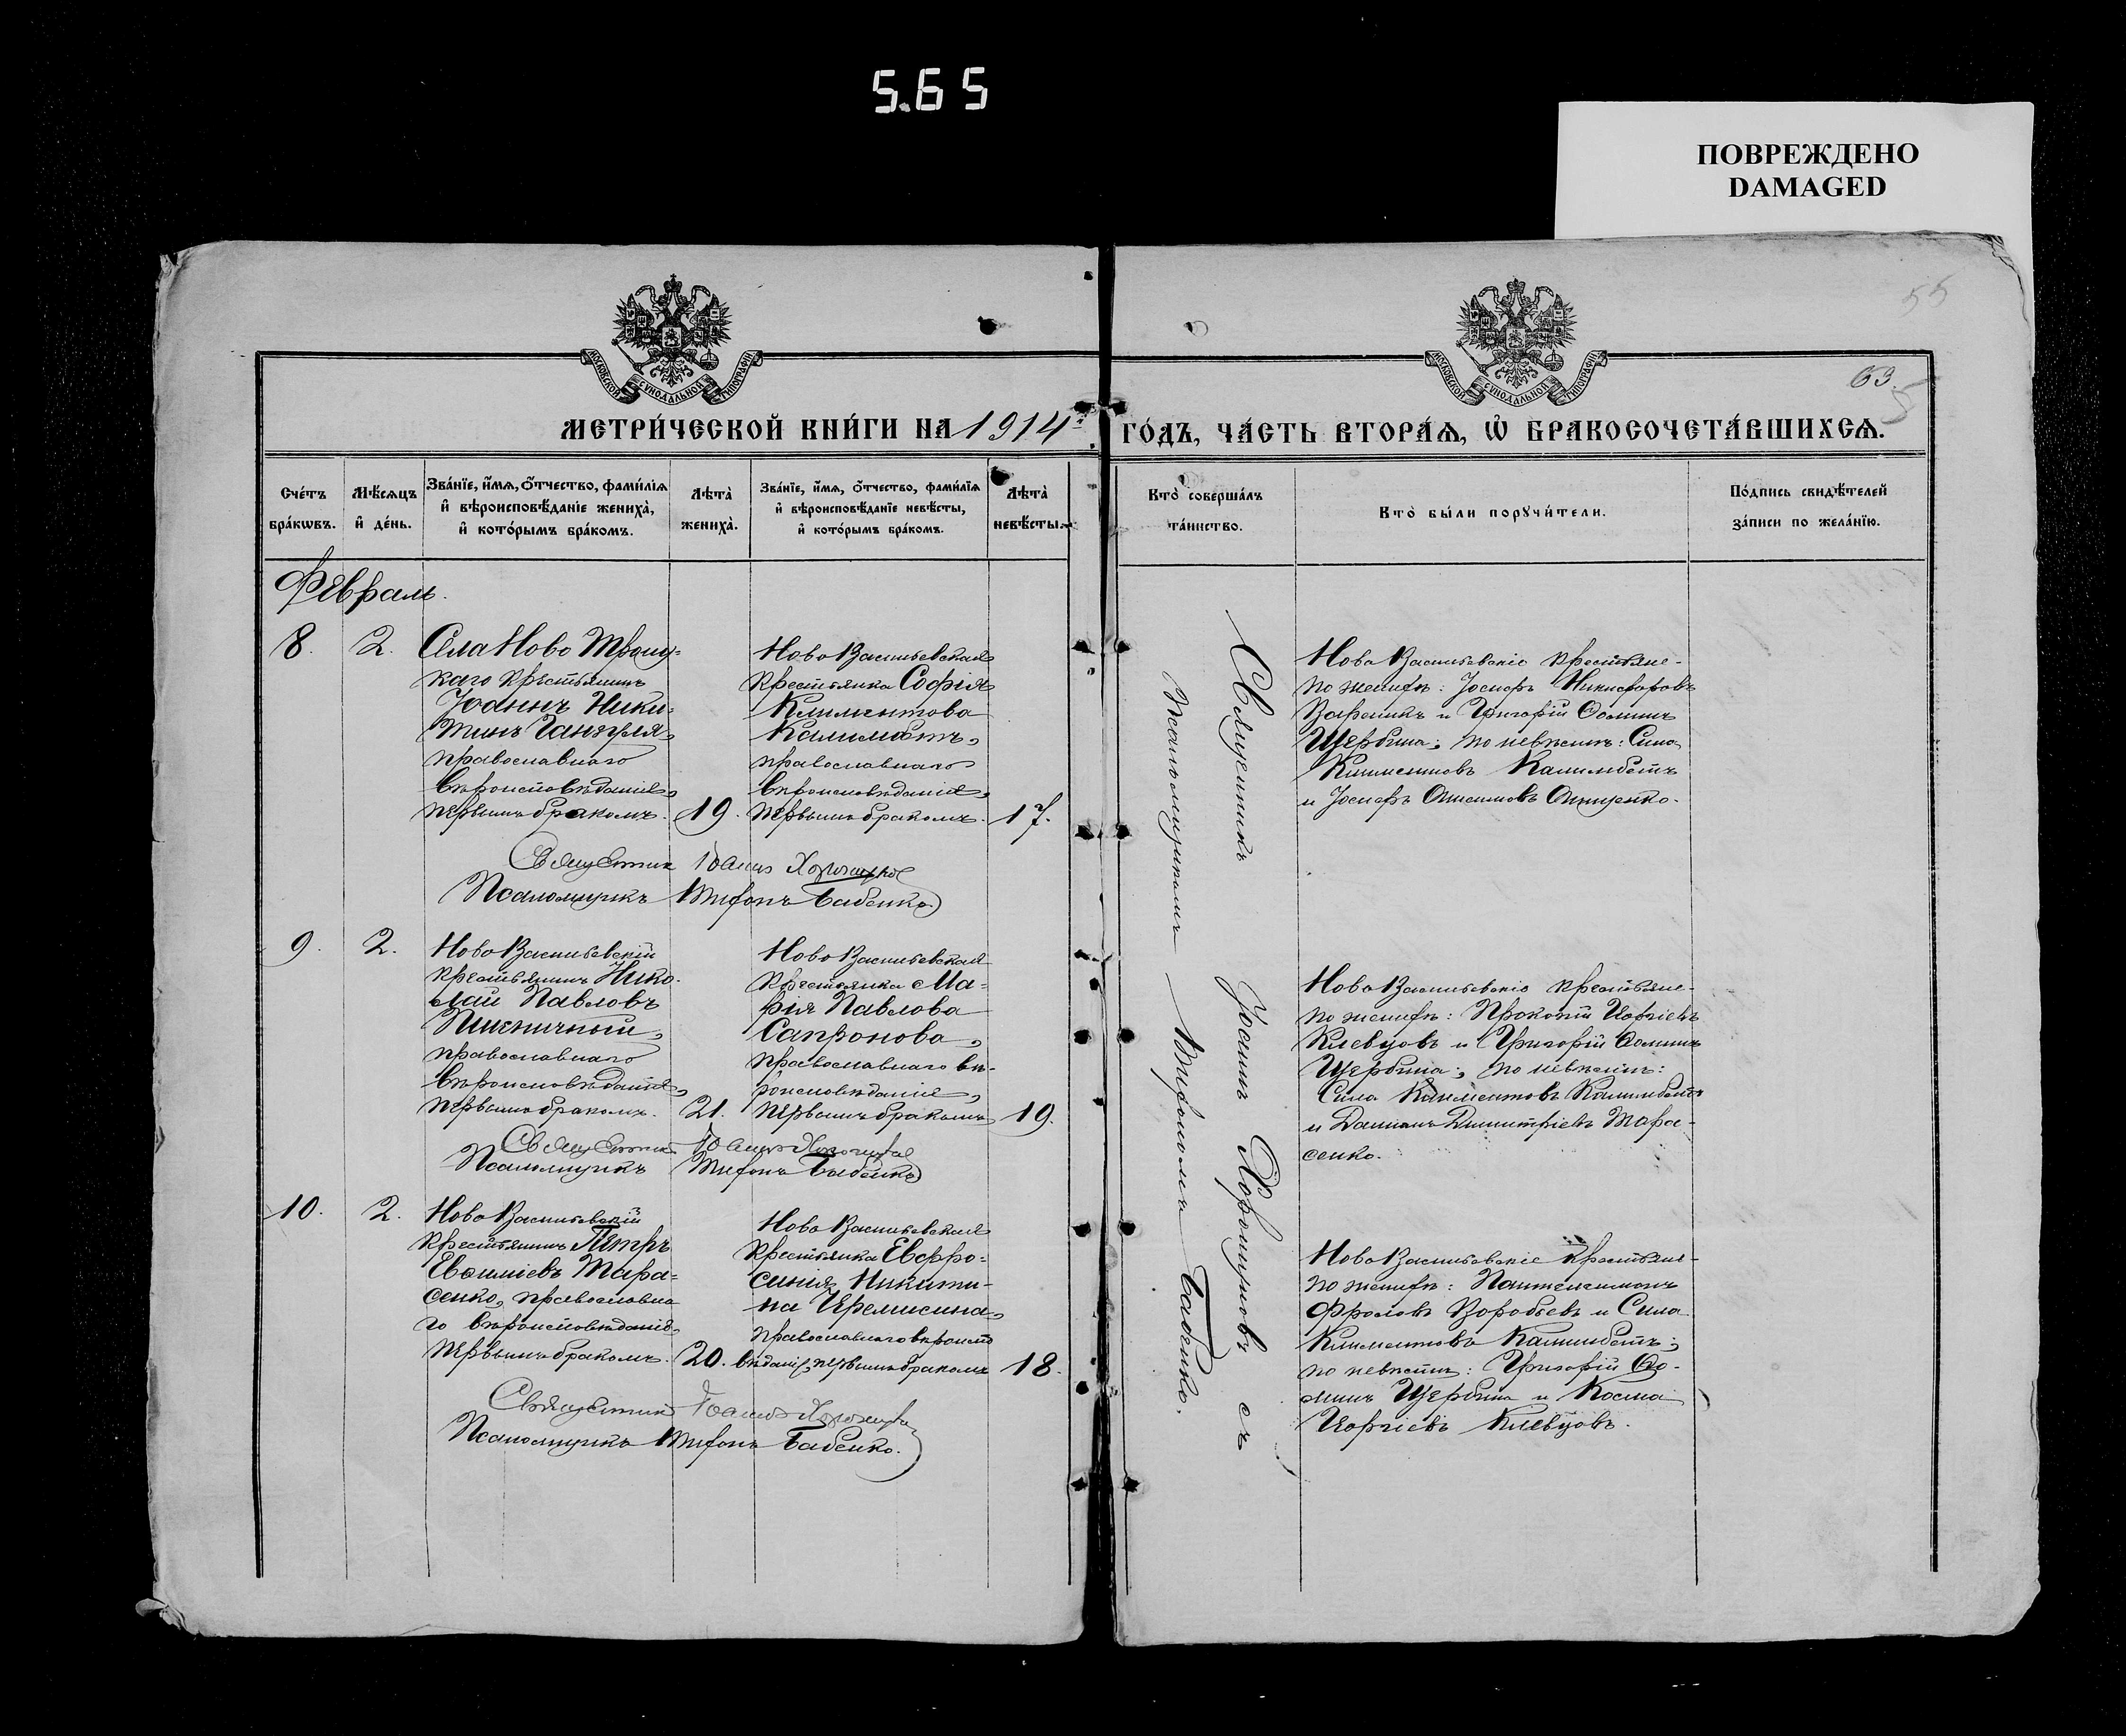 5.65
ПОВРЕЖДЕНО
DAMAGED
55
63.
МОСКОВСКОЙ СѴНОДАЛЬНОЙ ТИПОГРАФІИ
МОСКОВСКОЙ СѴНОДАЛЬНОЙ ТИПОГРАФІИ
МЕТРИ́ЧЕСКОЙ КНИ́ГИ НА 1914й
ГО́ДЪ, ЧА́СТЬ ВТОРА́Ѧ, Ѽ БРАКОСОЧЕТА́ВШИХСѦ.
Сче́тъ
бра́кѡвъ.
Мѣ́сѧцъ
и҆ де́нь.
Зва́нїе, и҆́мѧ, ѻ҆́тчество, фами́лїѧ
и҆ вѣроисповѣ́данїе жениха̀,
и҆ кото́рымъ бра́комъ.
Лѣта̀
жениха̀.
Зва́нїе, и҆́мѧ, ѻ҆́тчество, фами́лїѧ
и҆ вѣроисповѣ́данїе невѣ́сты,
и҆ кото́рымъ бра́комъ.
Лѣта̀
невѣ́сты.
Кто̀ соверша́лъ
та́инство.
Кто̀ бы́ли порꙋчи́тели.
По́дпись свидѣ́телей
за́писи по жела́нїю.
Февраль.
8.
2.
Села Ново Троиц=
каго крестьянинъ
Іоаннъ Ники=
тинъ Гангуля,
православнаго
вѣроисповѣданія,
первымъ бракомъ.
19.
Ново Васильевская
крестьянка Софія
Климентова
Калимбетъ,
православнаго
вѣроисповѣданія,
первымъ бракомъ.
17.
Ново Васильевскіе крестьяне-
по женихѣ: Іосифъ Никифоровъ
и Григорій Ѳоминъ
Щербина; по невѣстѣ: Сила
Климентовъ Калимбетъ
и Іосифъ Онищенко.
Священник Іоаннъ
Псаломщикъ Трифонъ Бабенко
9.
2.
Ново Васильевскій
крестьянинъ Нико-
лай Павловъ
Пшеничный,
православнаго
вѣроисповѣданія,
первымъ бракомъ.
21.
Ново Васильевская
крестьянка Ма=
рія Павлова
Сапронова,
православнаго вѣ-
роисповѣданія,
первымъ бракомъ
19.
Ново Васильевскіе крестьяне-
по женихѣ: Прокопій
Клевцовъ и Григорій Ѳоминъ
Щербина; по невѣстѣ:
Сила Климентовъ Калимбетъ
и Даніилъ Димитріевъ Тара-
сенко.
Священник Іоаннъ
Псаломщикъ Трифонъ Бабенко
10.
2.
Ново Васильевскій
крестьянинъ Петръ
Евѳиміевъ Тара=
сенко, православна
го вѣроисповѣданія,
первымъ бракомъ.
20.
Ново Васильевская
крестьянка Евфро=
синія Никити-
на Черемисина,
православнаго вѣроиспо
вѣданія, первымъ бракомъ
18.
Ново Васильевскіе крестьяне-
по женихѣ: Пантелеимонъ
Фроловъ Воробьевъ и Сила
Климентовъ Калимбетъ;
по невѣстѣ: Григорій Ѳо-
минъ Щербина и Косма
Клевцовъ.
Священник Іоаннъ
Псаломщикъ Трифонъ Бабенко.
Священникъ Іоаннъ Хорошуновъ съ
Псаломщикомъ Трифономъ Бабенко.